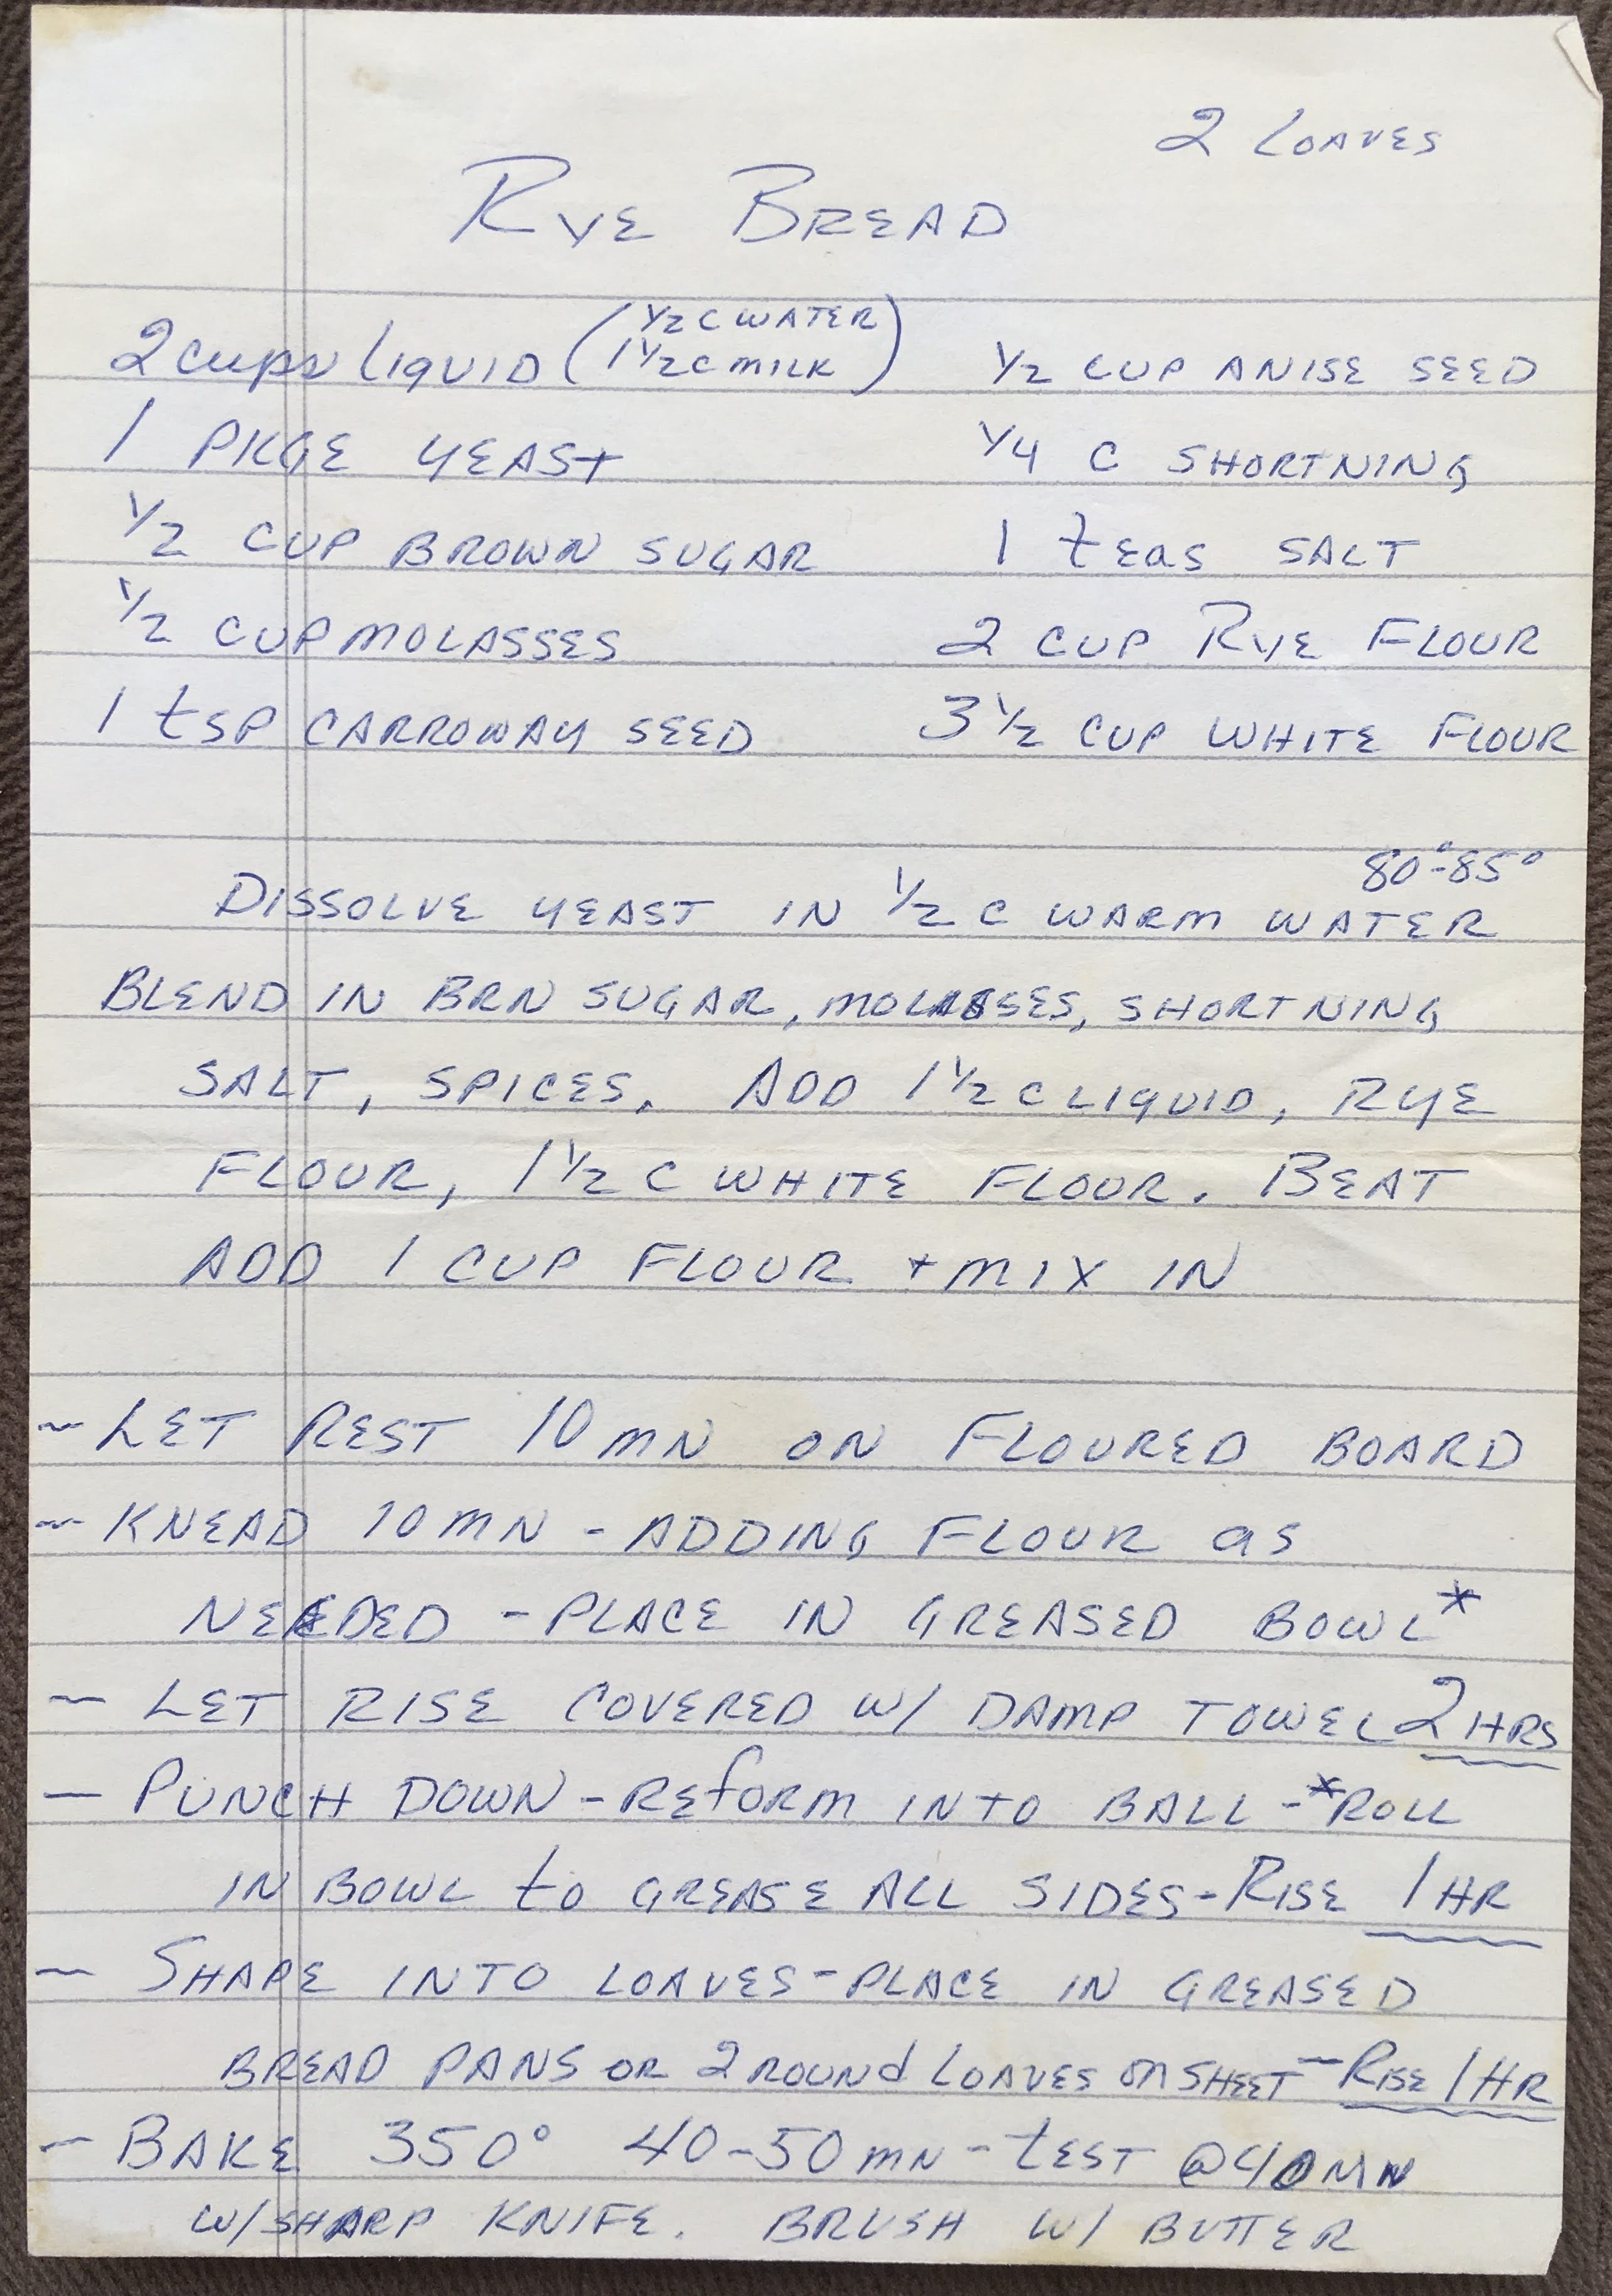 2 LOAVES
RYE BREAD
2 cups LIQUID (1/2 C WATER 1 1/2 C MILK) 1/2 CUP ANISE SEED
1 PKGE YEAST 1/4 C SHORTNING
1/2 CUP BROWN SUGAR 1 teas SALT
1/2 CUP MOLASSES 2 CUP RYE FLOUR
1 tSP CARROWAY SEED 3 1/2 CUP WHITE FLOUR
80°-85°
DISSOLVE YEAST IN 1/2 C WARM WATER
BLEND IN BRN SUGAR, MOLASSES, SHORTNING
SALT, SPICES. ADD 1 1/2 C LIQUID, RYE
FLOUR, 1 1/2 C WHITE FLOUR. BEAT
ADD 1 CUP FLOUR + MIX IN
~ LET REST 10 MN ON FLOURED BOARD
~ KNEAD 10 MN - ADDING FLOUR as
NEEDED - PLACE IN GREASED BOWL*
~ LET RISE COVERED W/ DAMP TOWEL 2 HRS
- PUNCH DOWN - REFORM INTO BALL - *ROLL
IN BOWL to GREASE ALL SIDES - RISE 1 HR
- SHAPE INTO LOAVES - PLACE IN GREASED
BREAD PANS OR 2 ROUNd LOAVES ON SHEET - RISE 1 HR
- BAKE 350° 40-50 MN - tEST @ 40 MN
W/ SHARP KNIFE. BRUSH W/ BUTTER